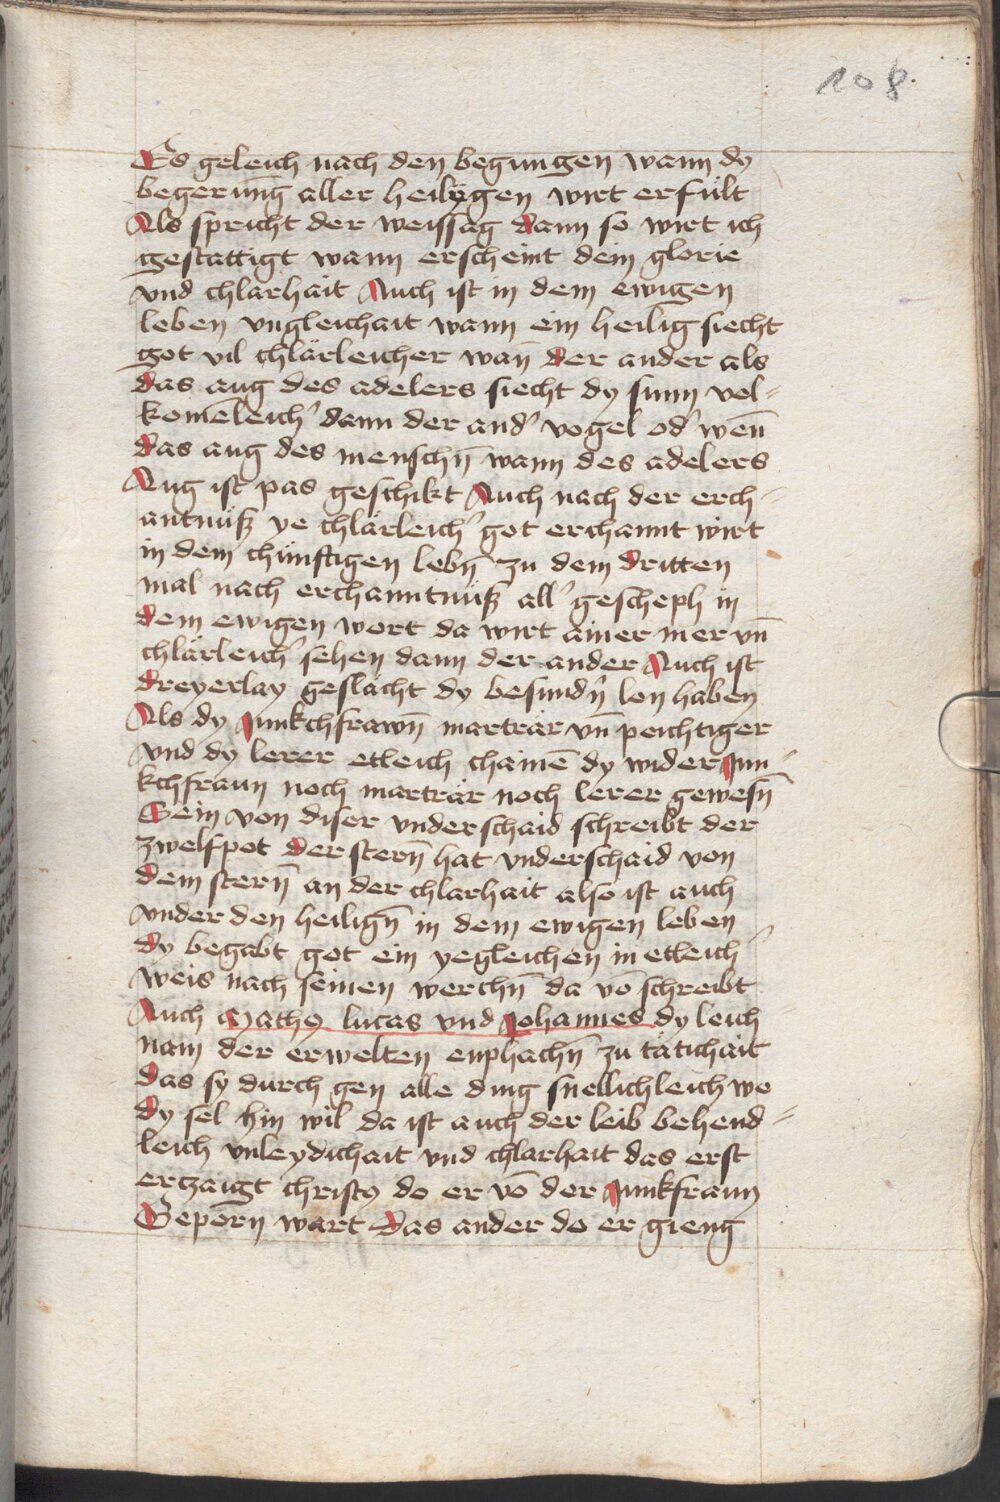 108.
Es geleich nach den begungen wann dy
begerung aller heilygen wirt erfült
Als spricht der weissag dann so wirt ich
gesattigt wann erscheint dein glorie
vnd chlarhait Auch ist in dem ewigen
leben vngleichait wann ein heilig siecht
got vil chlärleicher wan̄ der ander als
das aug des adelers siecht dy sunn vol-
komēleich' dann der and' vogel od' wen̄
das aug des menschn̄ wann des adelers
Aug ist pas geschikt Auch nach der erch-
antnüß ye chlärleich' got erchannt wirt
in dem chünftigen lebn̄ zu dem dritten
mal nach erchanntnüß all' gescheph in
dem ewigen wort da wirt ainer mer vn̄
chlärleich' sehen dann der ander Auch ist
dreyerlay geslächt dy besundn̄ lon haben
Als dy Junkchfrawn̄ marträr vn̄ peichtiger
vnd dy lerer etleich chainē dy wider Jun-
kchfraun noch marträr noch lerer gewesn̄
Sein von diser vnderschaid schreibt der
zwelfpot der stern̄ hat vnderschaid von
dem stern̄ an der chlarhait also ist auch
vnder den heilign̄ in dem ewigen leben
dy begabt got ein yegleichen in etleich-
weis nach seinen werchn̄ da vō schreibt
Auch Matheꝰ lucas vnd Johannes dy leich
nam der erwelten enphachn̄ zu tätichait
das sy durch gen alle ding snellichleich wo
dy sel hin wil da ist auch der leib behend-
leich vnleydichait vnd chlarhait das erst
erczaigt christꝰ do er vō der Junkfraun
Geporn wart das ander do er gieng